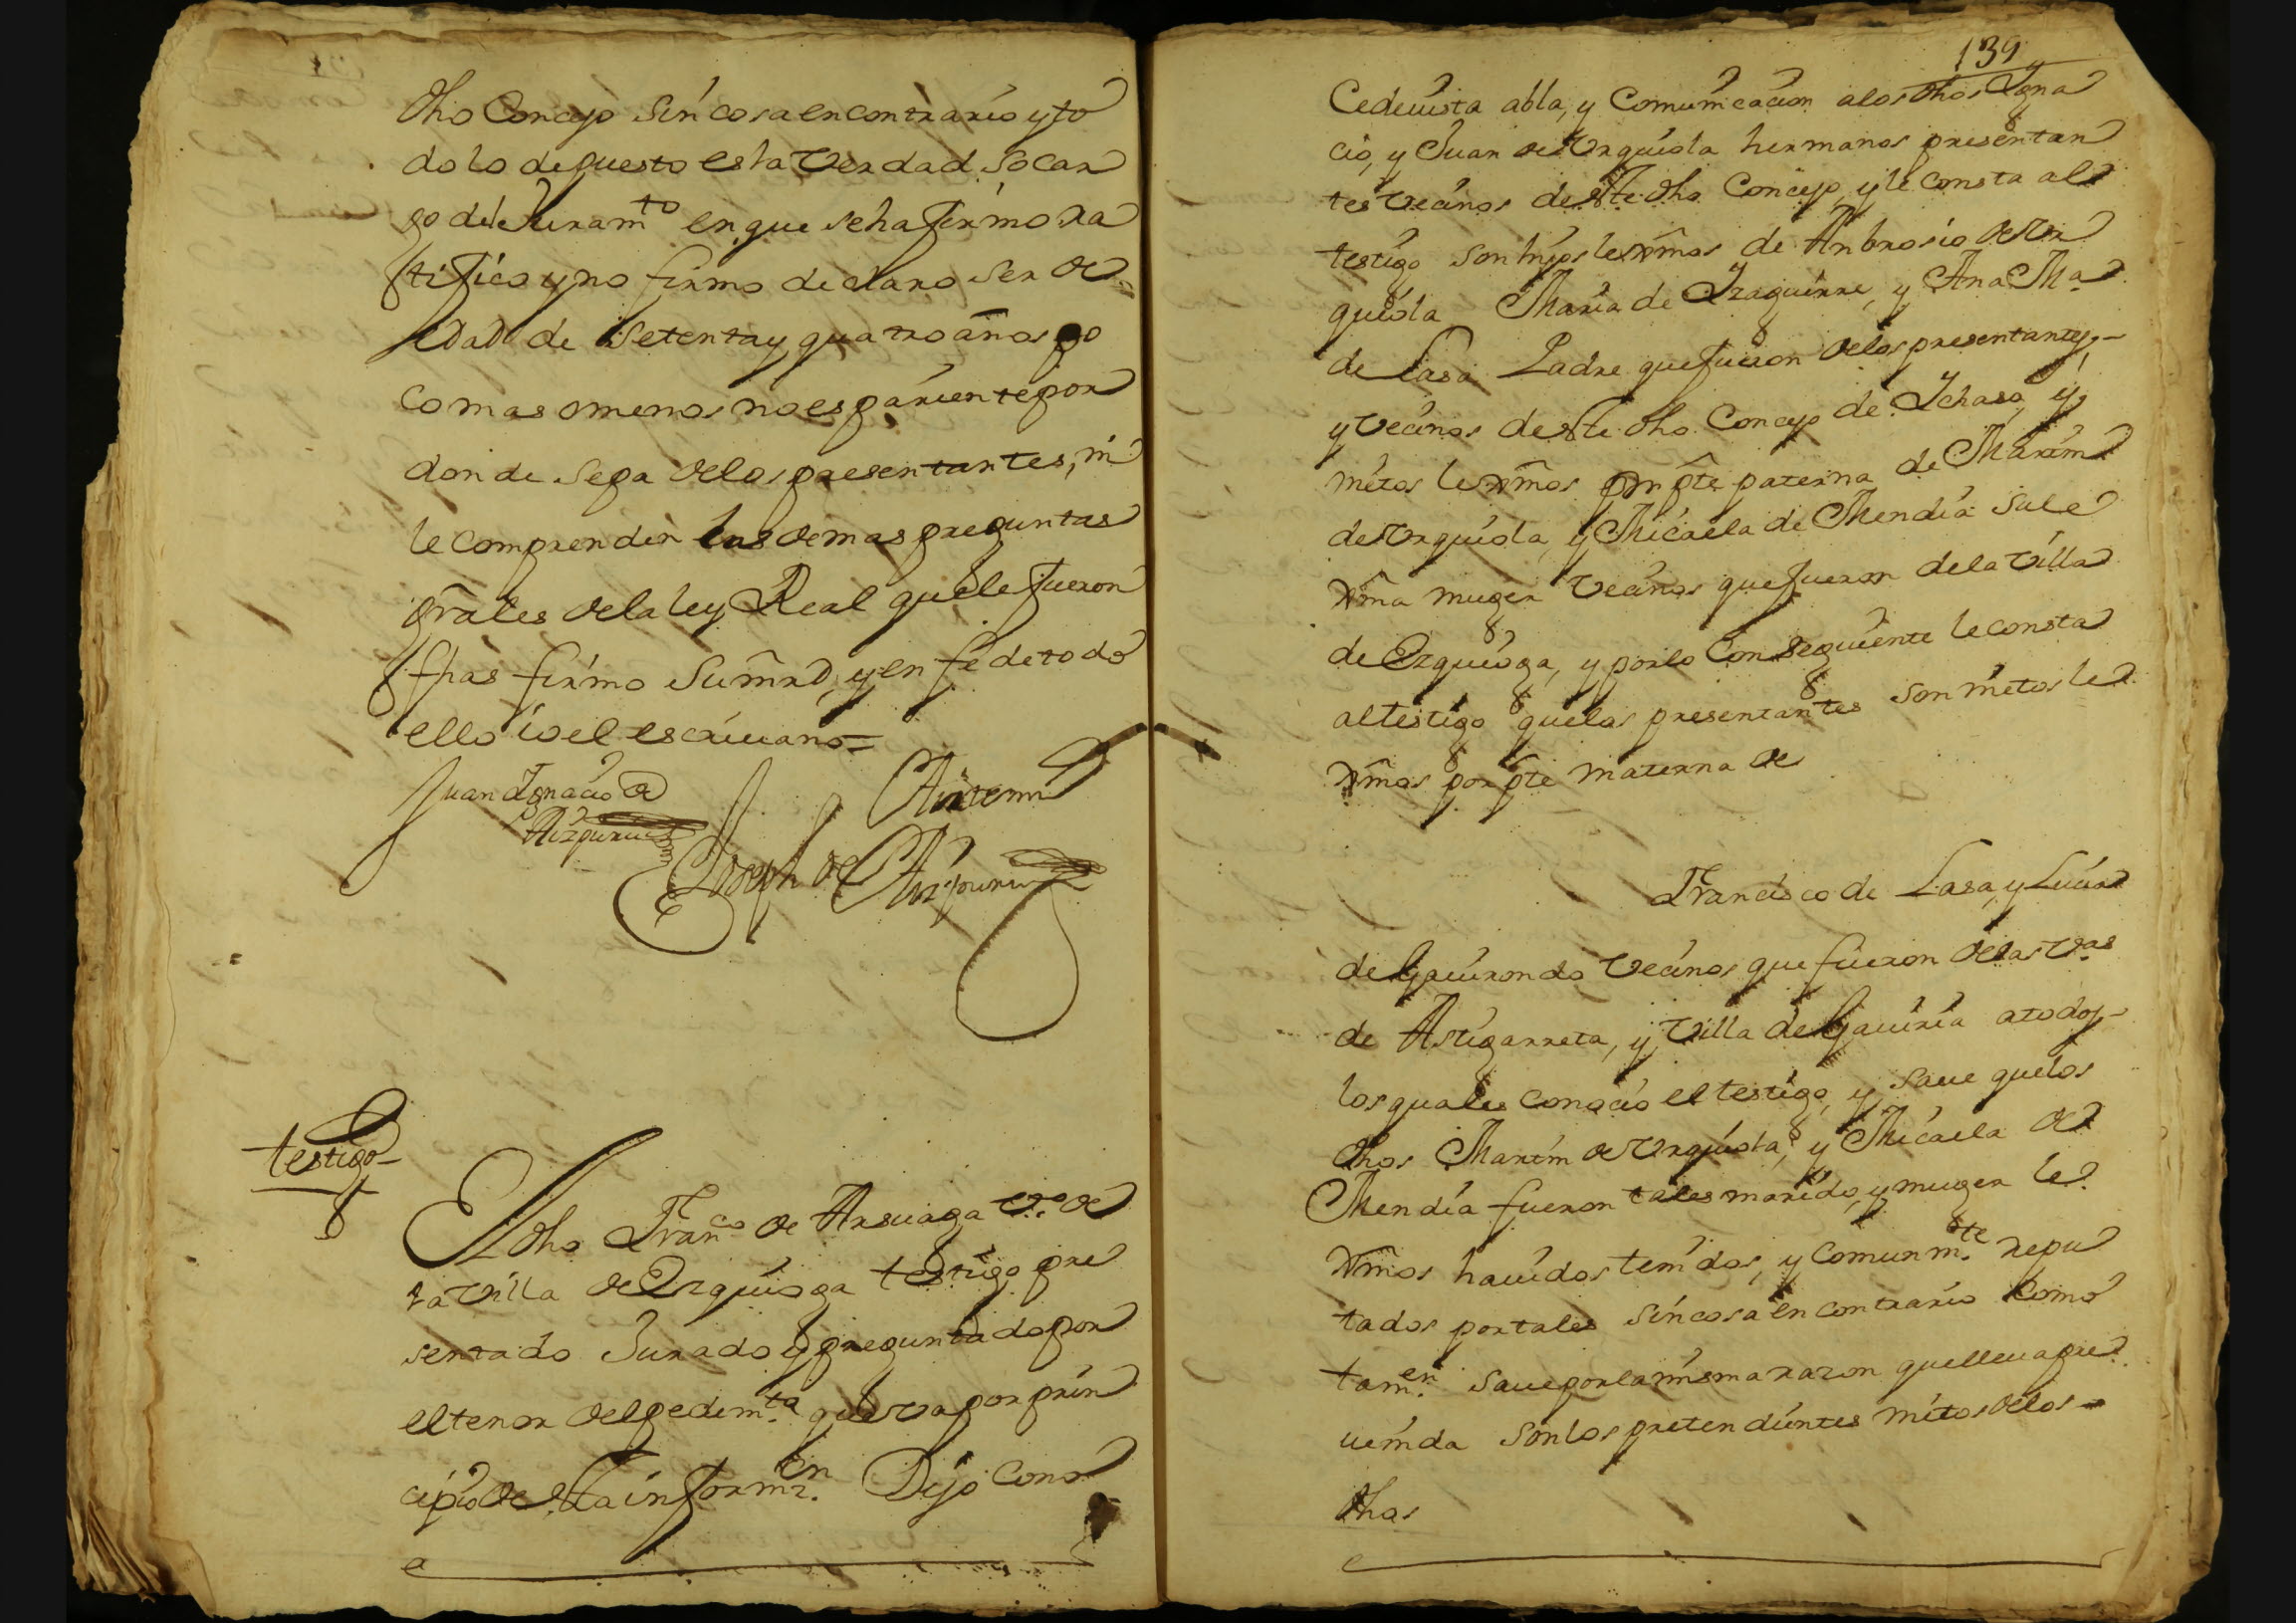 dho Concejo sin cosa en contrario y to
do lo depuesto es la verdad so car
go del Juram.to en que se ha firmo ra
tifico y no firmo declaro ser de
edad de setenta y quatro años po
co mas o menos no es pariente por
donde sepa de los presentantes, ni
le comprenden las demas preguntas
gr̃ales de la ley Real que le fueron
fhas firmo Su mr̃d, y en fe de todo
ello io el escriuano=
Juan Ignacio de
Aizpuru
Ante mi
Joseph de Aizpuru
testigo
El dho Fran.co de Arsuaga v.o de
la villa de Ezquioga testigo pre
sentado Jurado y preguntado por
el tenor del pedim.to que va por prin
cipio de esta inform.on Dijo Cono
139
Ce de vista abla, y Comunicacion a los dhos Igna
cio, y Juan de Vrquiola hermanos presentan
tes vecinos de este dho Concejo, y le consta al
testigo son hijos lexmos de Anbrosio de Vr
quiola Maria de Izaguirre, y Ana M.a
de Lasa Padre que fueron de los presentantes
y vecinos de este dho Concejo de Ichaso, y
nietos lexmos por pte paterna de Martin
de Vrquiola, y Micaela de Mendia su le
xma muger vecinos que fueron de la villa
de Ezquioga, y por lo Conseguiente le consta
al testigo que los presentantes son nietos le
xmos por pte materna de
Francisco de Lasa, y Lucia
de Gauirondo vecinos que fueron de las v.as
de Astigarreta, y Villa de Gauiria a todos
los quales conocio el testigo, y saue que los
dhos Martin de Vrquiola, y Micaela de
Mendia fueron tales marido, y muger le
xmos hauidos tenidos, y comunm.te repu
tados por tales sin cosa en contrario como
tam.en saue por la misma razon que lleua pre
uenida son los pretendientes nietos de los
dhos